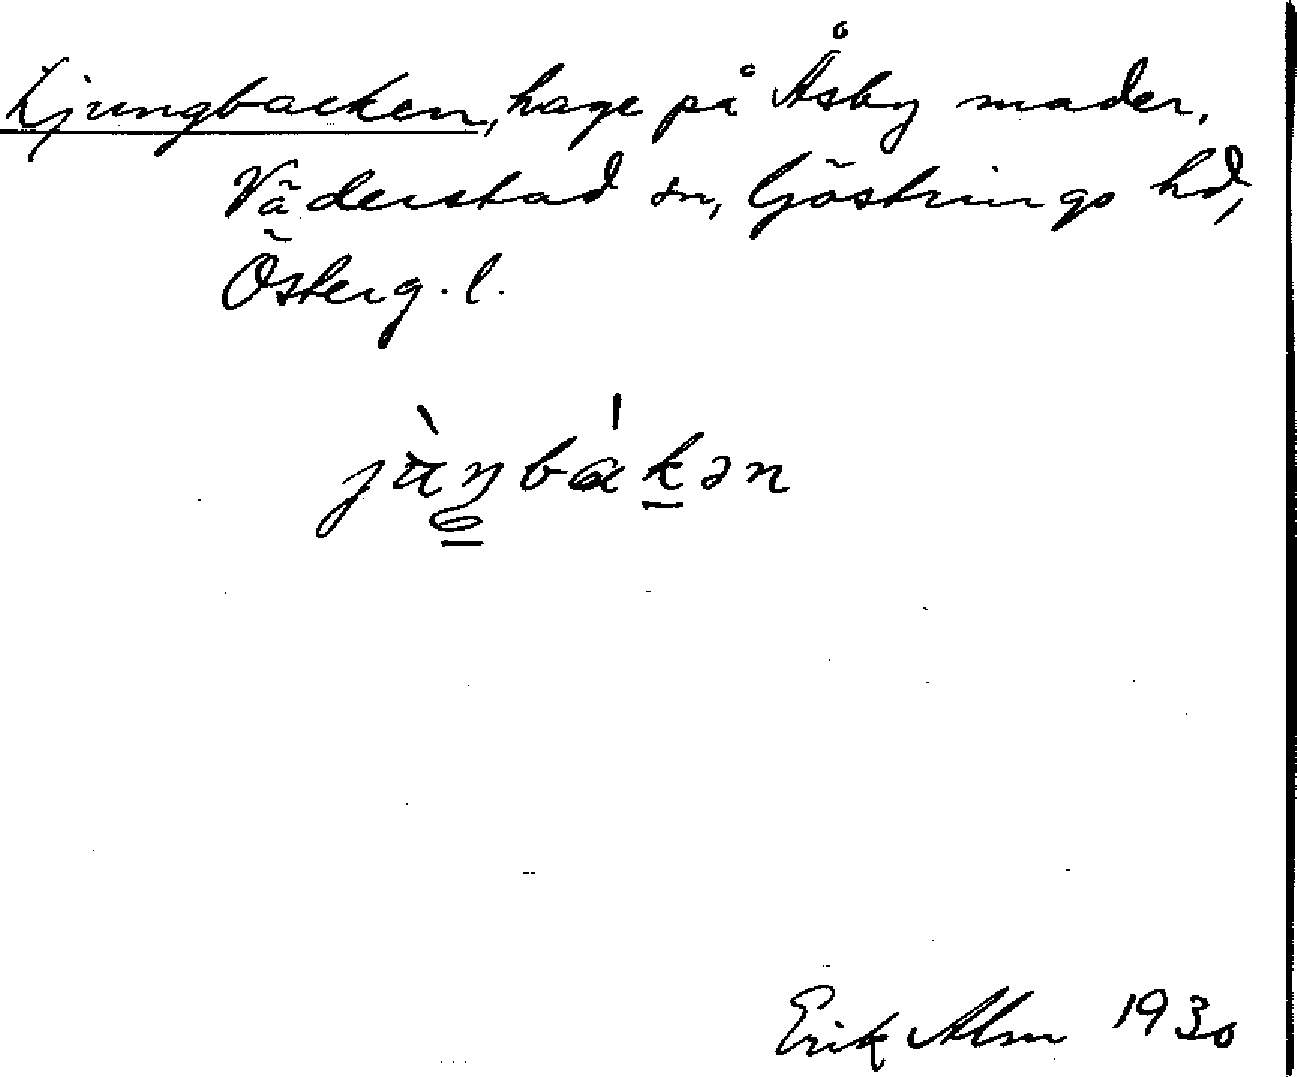 Ljungbacken, hage på Åsby mader,
Väderstad sn, Göstrings hd,
Österg.l.
jùŋbákən
Erik Alm 1930